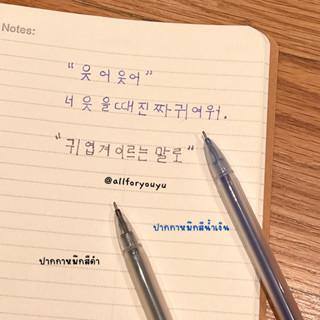 Notes:
"웃어웃어"
너 웃을때 진짜 귀여워.
"귀엽겨 이르는 말로"
@allforyouyu
ปากกาหมึกสีน้ำเงิน
ปากกาหมึกสีดำ